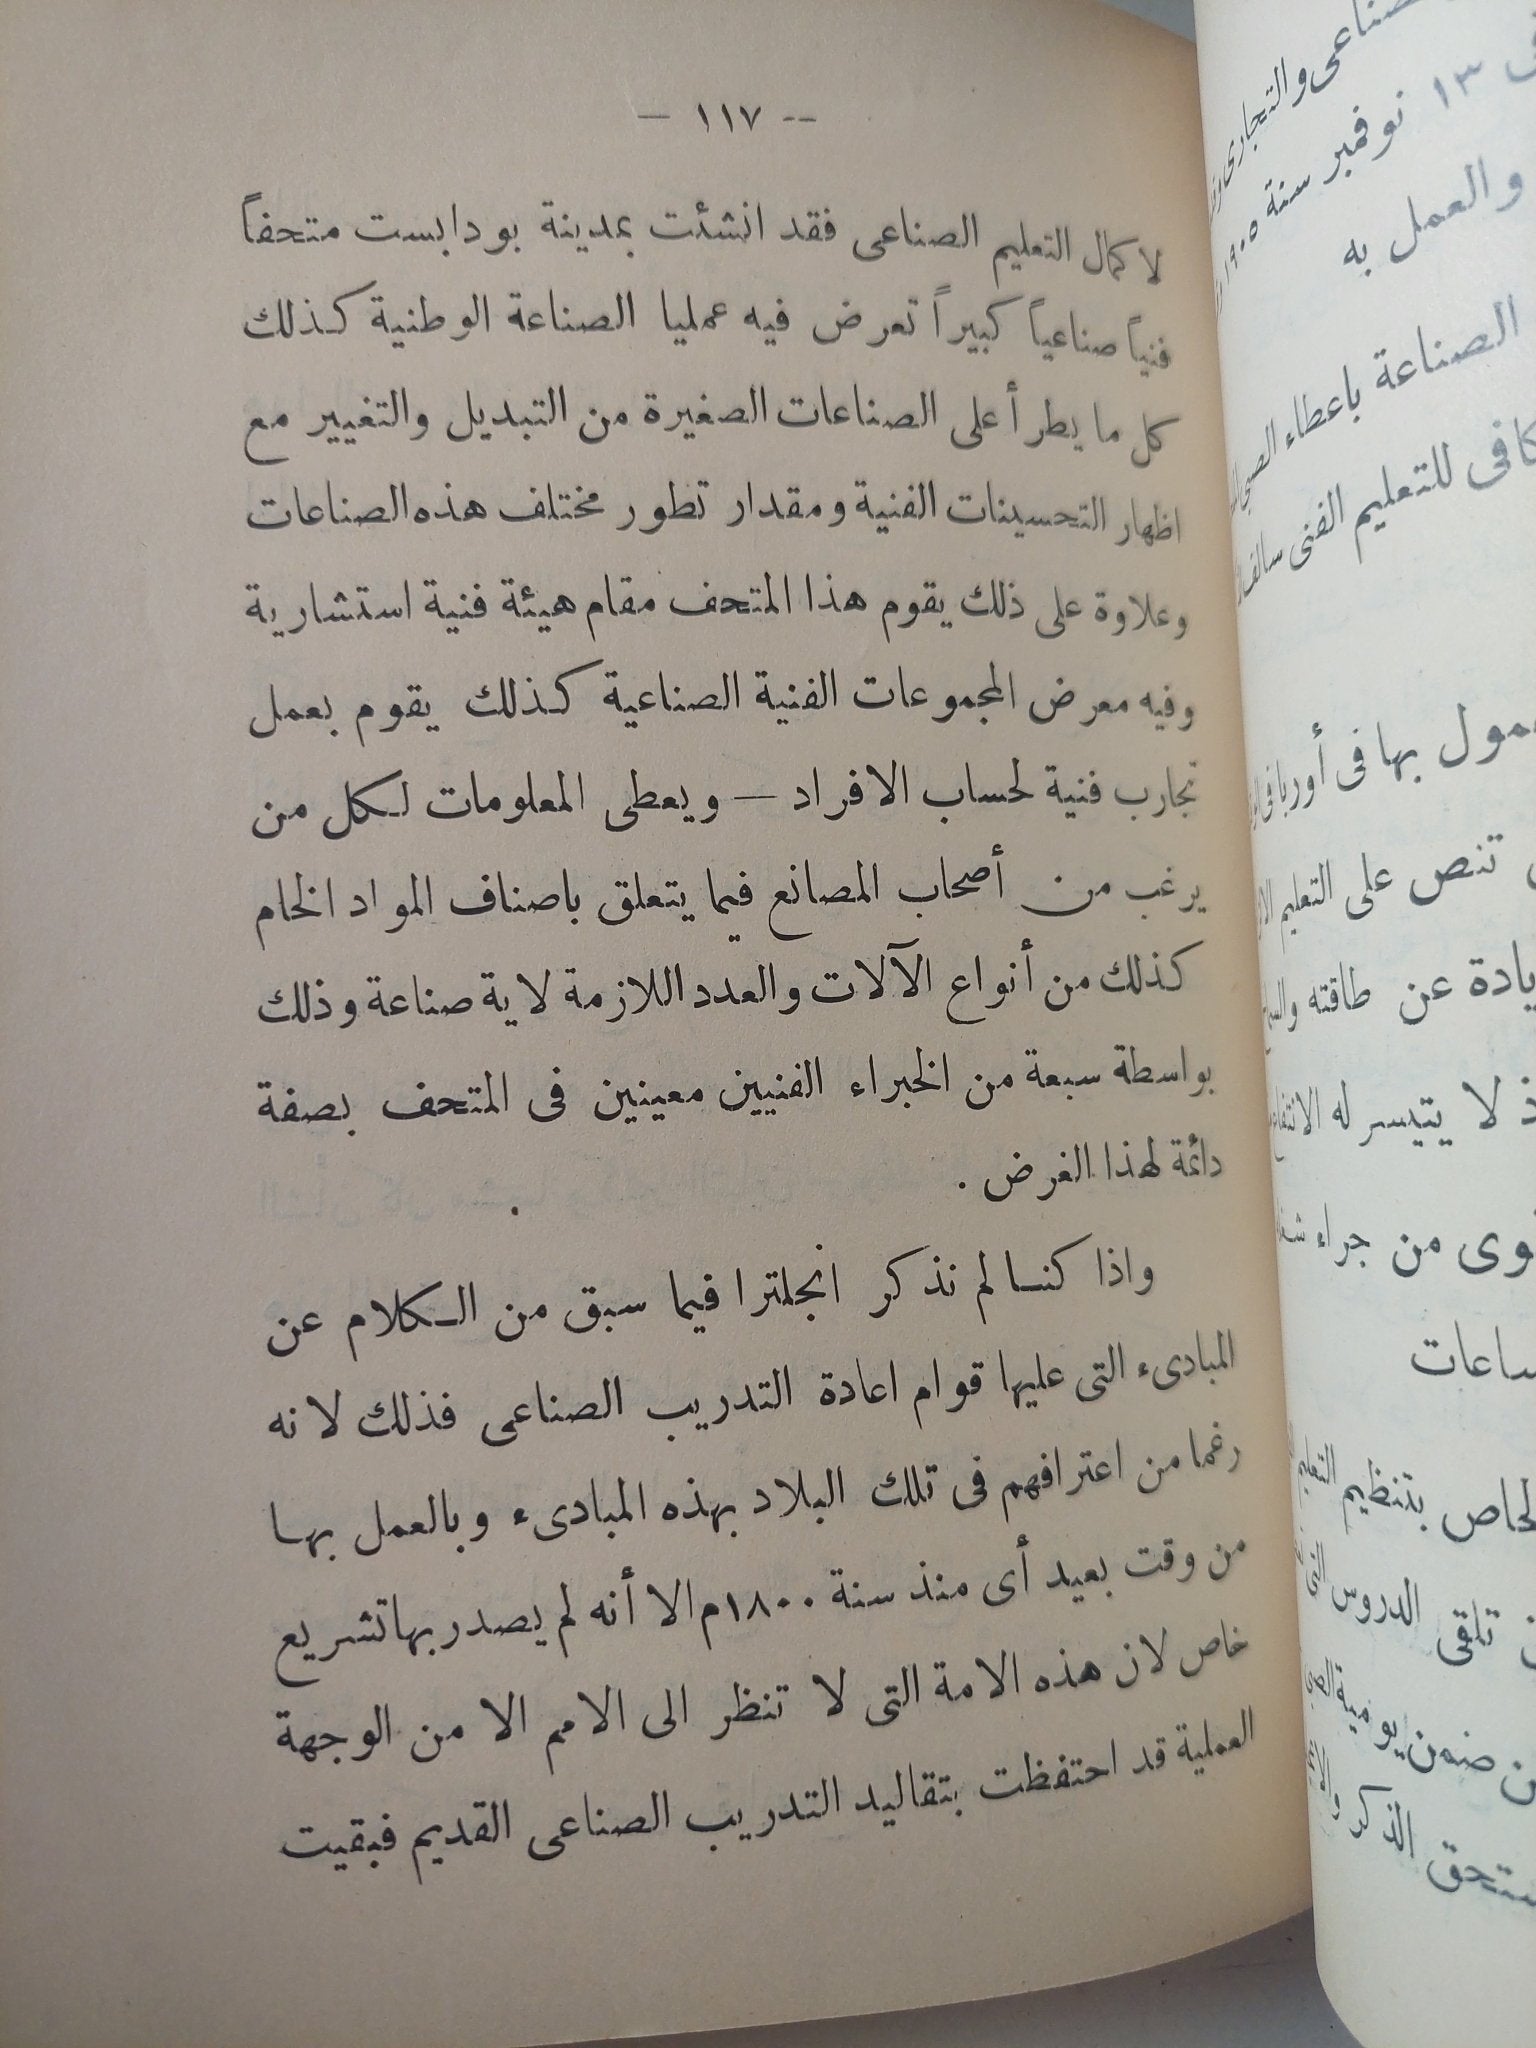 -- ١١٧ —
لا كمال التعليم الصناعى فقد انشئت بمدينة بودابست متحفاً
فنياً صناعياً كبيراً تعرض فيه عمليا الصناعة الوطنية كذلك
كل ما يطرأ على الصناعات الصغيرة من التبديل والتغيير مع
اظهار التحسينات الفنية ومقدار تطور مختلف هذه الصناعات
وعلاوة على ذلك يقوم هذا المتحف مقام هيئة فنية استشارية
وفيه معرض المجموعات الفنية الصناعية كذلك يقوم بعمل
تجارب فنية لحساب الافراد — ويعطى المعلومات لكل من
يرغب من أصحاب المصانع فيما يتعلق باصناف المواد الخام
كذلك من أنواع الآلات والعدد اللازمة لاية صناعة وذلك
بواسطة سبعة من الخبراء الفنيين معينين فى المتحف بصفة
دائمة لهذا الغرض .
واذا كنا لم نذكر انجلترا فيما سبق من الكلام عن
المبادىء التى عليها قوام اعادة التدريب الصناعى فذلك لانه
رغما من اعترافهم فى تلك البلاد بهذه المبادىء وبالعمل بها
من وقت بعيد أى منذ سنة ١٨٠٠م الا أنه لم يصدر بها تشريع
خاص لان هذه الامة التى لا تنظر الى الامم الا من الوجهة
العملية قد احتفظت بتقاليد التدريب الصناعى القديم فبقيت
والتجارى
١٣ نوفمبر سنة ١٩٠٥
والعمل به
الصناعة باعطاء الصبى
للتعليم الفنى سالف
بها فى أوربا
تنص على التعليم
عن طاقته
لا يتيسر له
من جراء
ساعات
بتنظيم التعليم
تلقى الدروس التى
ضمن يومية
الذكر